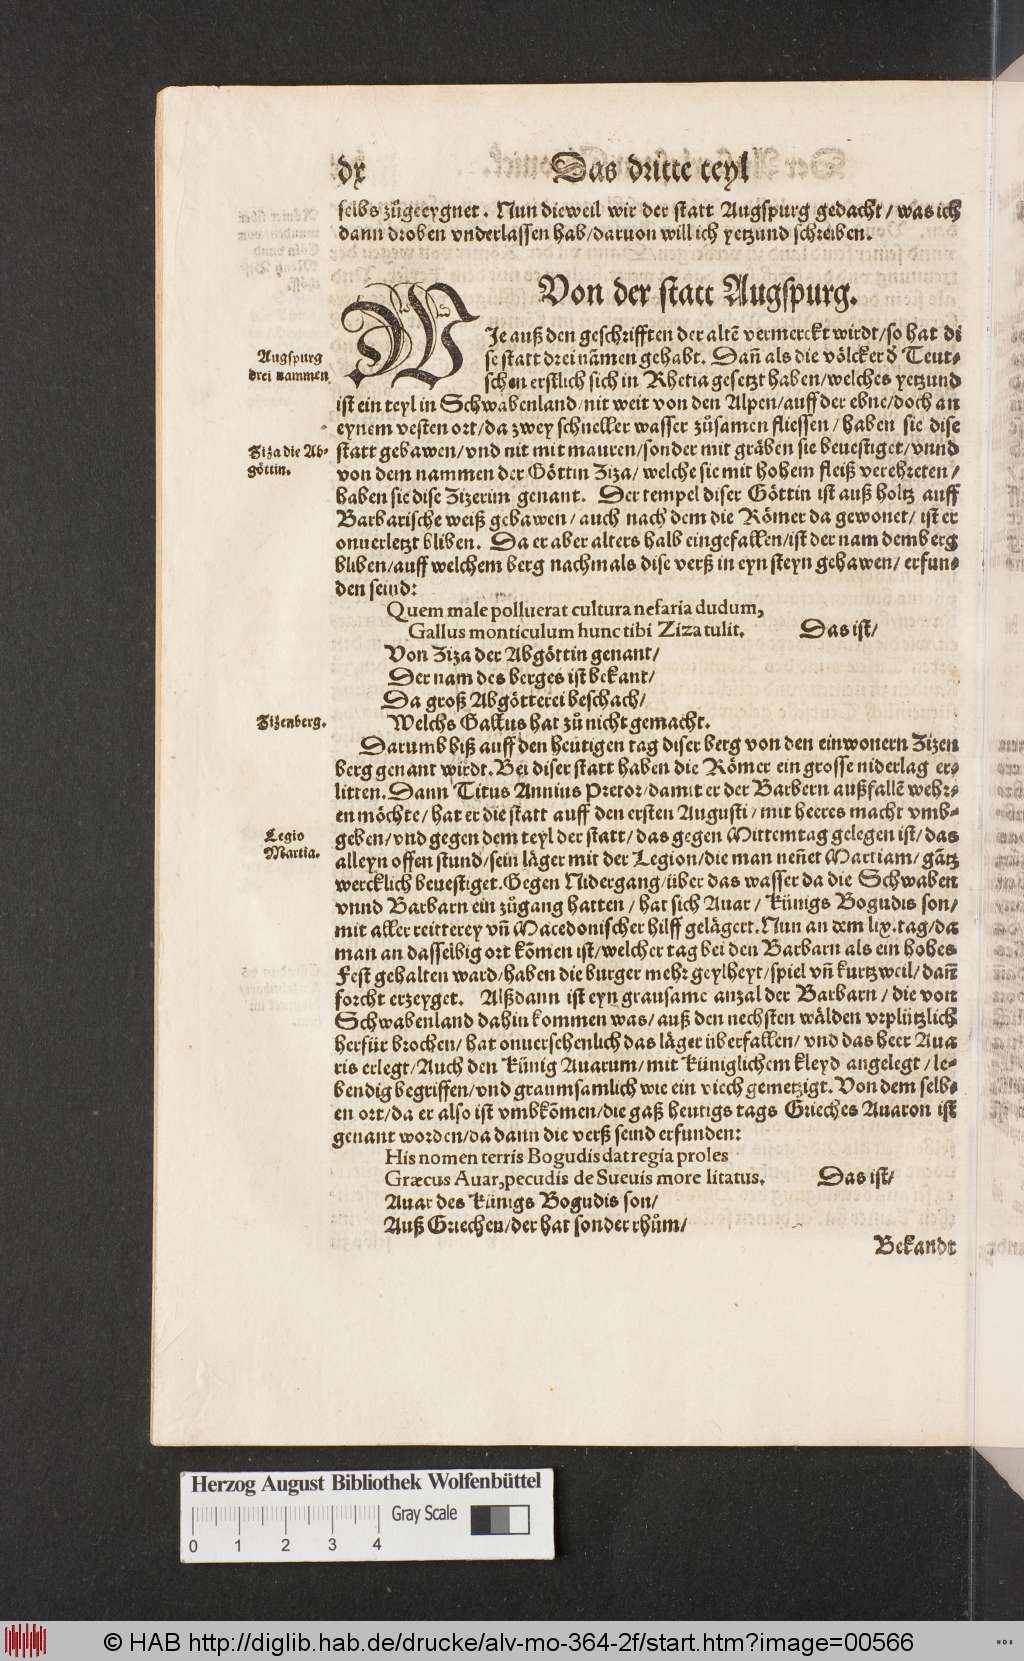 dx
Das dritte teyl
selbs zůgeeygnet. Nun dieweil wir der statt Augspurg gedacht / was ich
dann droben vnderlassen hab / daruon will ich yetzund schreiben.
Von der statt Augspurg.
WJe auß den geschrifften der altē vermerckt wirdt / so hat di
se statt drei nāmen gehabt. Dañ als die völcker d' Teut⸗
schen erstlich sich in Rhetia gesetzt haben / welches yetzund
ist ein teyl in Schwabenland / nit weit von den Alpen / auff der ebne / doch an
eynem vesten ort / da zwey schneller wasser zůsamen fliessen / haben sie dise
statt gebawen / vnd nit mit mauren / sonder mit gräben sie beuestiget / vnnd
von dem nammen der Göttin Ziza / welche sie mit hohem fleiß verehreten /
haben sie dise Zizerim genant. Der tempel diser Göttin ist auß holtz auff
Barbarische weiß gebawen / auch nach dem die Römer da gewonet / ist er
onuerletzt bliben. Da er aber alters halb eingefallen / ist der nam dem berg
bliben / auff welchem berg nachmals dise verß in eyn steyn gehawen / erfun⸗
den seind:
Augspurg
drei nammen
Ziza die Ab⸗
göttin.
Quem male polluerat cultura nefaria dudum,
Gallus monticulum hunc tibi Ziza tulit. Das ist /
Von Ziza der Abgöttin genant /
Der nam des berges ist bekant /
Da groß Abgötterei beschach /
Welchs Gallus hat zů nicht gemacht.
Zizenberg.
Darumb biß auff den heutigen tag diser berg von den einwonern Zizen
berg genant wirdt. Bei diser statt haben die Römer ein grosse niderlag er⸗
litten. Dann Titus Annius Pretor / damit er der Barbern außfallē wehr⸗
en möchte / hat er die statt auff den ersten Augusti / mit heeres macht vmb⸗
geben / vnd gegen dem teyl der statt / das gegen Mittemtag gelegen ist / das
alleyn offen stund / sein läger mit der Legion / die man neñet Martiam / gātz
wercklich beuestiget. Gegen Nidergang / über das wasser da die Schwaben
vnnd Barbarn ein zůgang hatten / hat sich Auar / Künigs Bogudis son /
mit aller reitterey vñ Macedonischer hilff gelägert. Nun an dem lix. tag / da
man an dasselbig ort kōmen ist / welcher tag bei den Barbarn als ein hohes
Fest gehalten ward / haben die burger mehr geylheyt / spiel vñ kurtzweil / dañ
forcht erzeyget. Alßdann ist eyn grausame anzal der Barbarn / die von
Schwabenland dahin kommen was / auß den nechsten wälden vrplützlich
herfür brochen / hat onuersehenlich das läger überfallen / vnd das heer Aua
ris erlegt / Auch den Künig Auarum / mit Küniglichem kleyd angelegt / le⸗
bendig begriffen / vnd graumsamlich wie ein viech gemetzigt. Von dem selb⸗
en ort / da er also ist vmbkōmen / die gaß heutigs tags Grieches Auaron ist
genant worden / da dann die verß seind erfunden:
Legio
Martia.
His nomen terris Bogudis dat regia proles
Græcus Auar, pecudis de Sueuis more litatus. Das ist /
Auar des Künigs Bogudis son /
Auß Griechen / der hat sonder rhům /
Bekandt
Herzog August Bibliothek Wolfenbüttel
Gray Scale
0 1 2 3 4
© HAB http://diglib.hab.de/drucke/alv-mo-364-2f/start.htm?image=00566